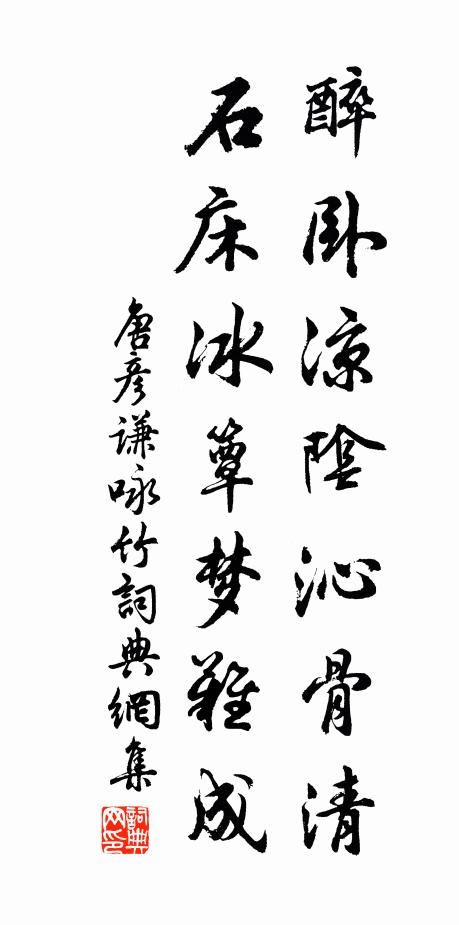 醉卧凉陰沁骨清
石床冰簟梦難成
唐彦謙咏竹詞典網集
詞典
网印